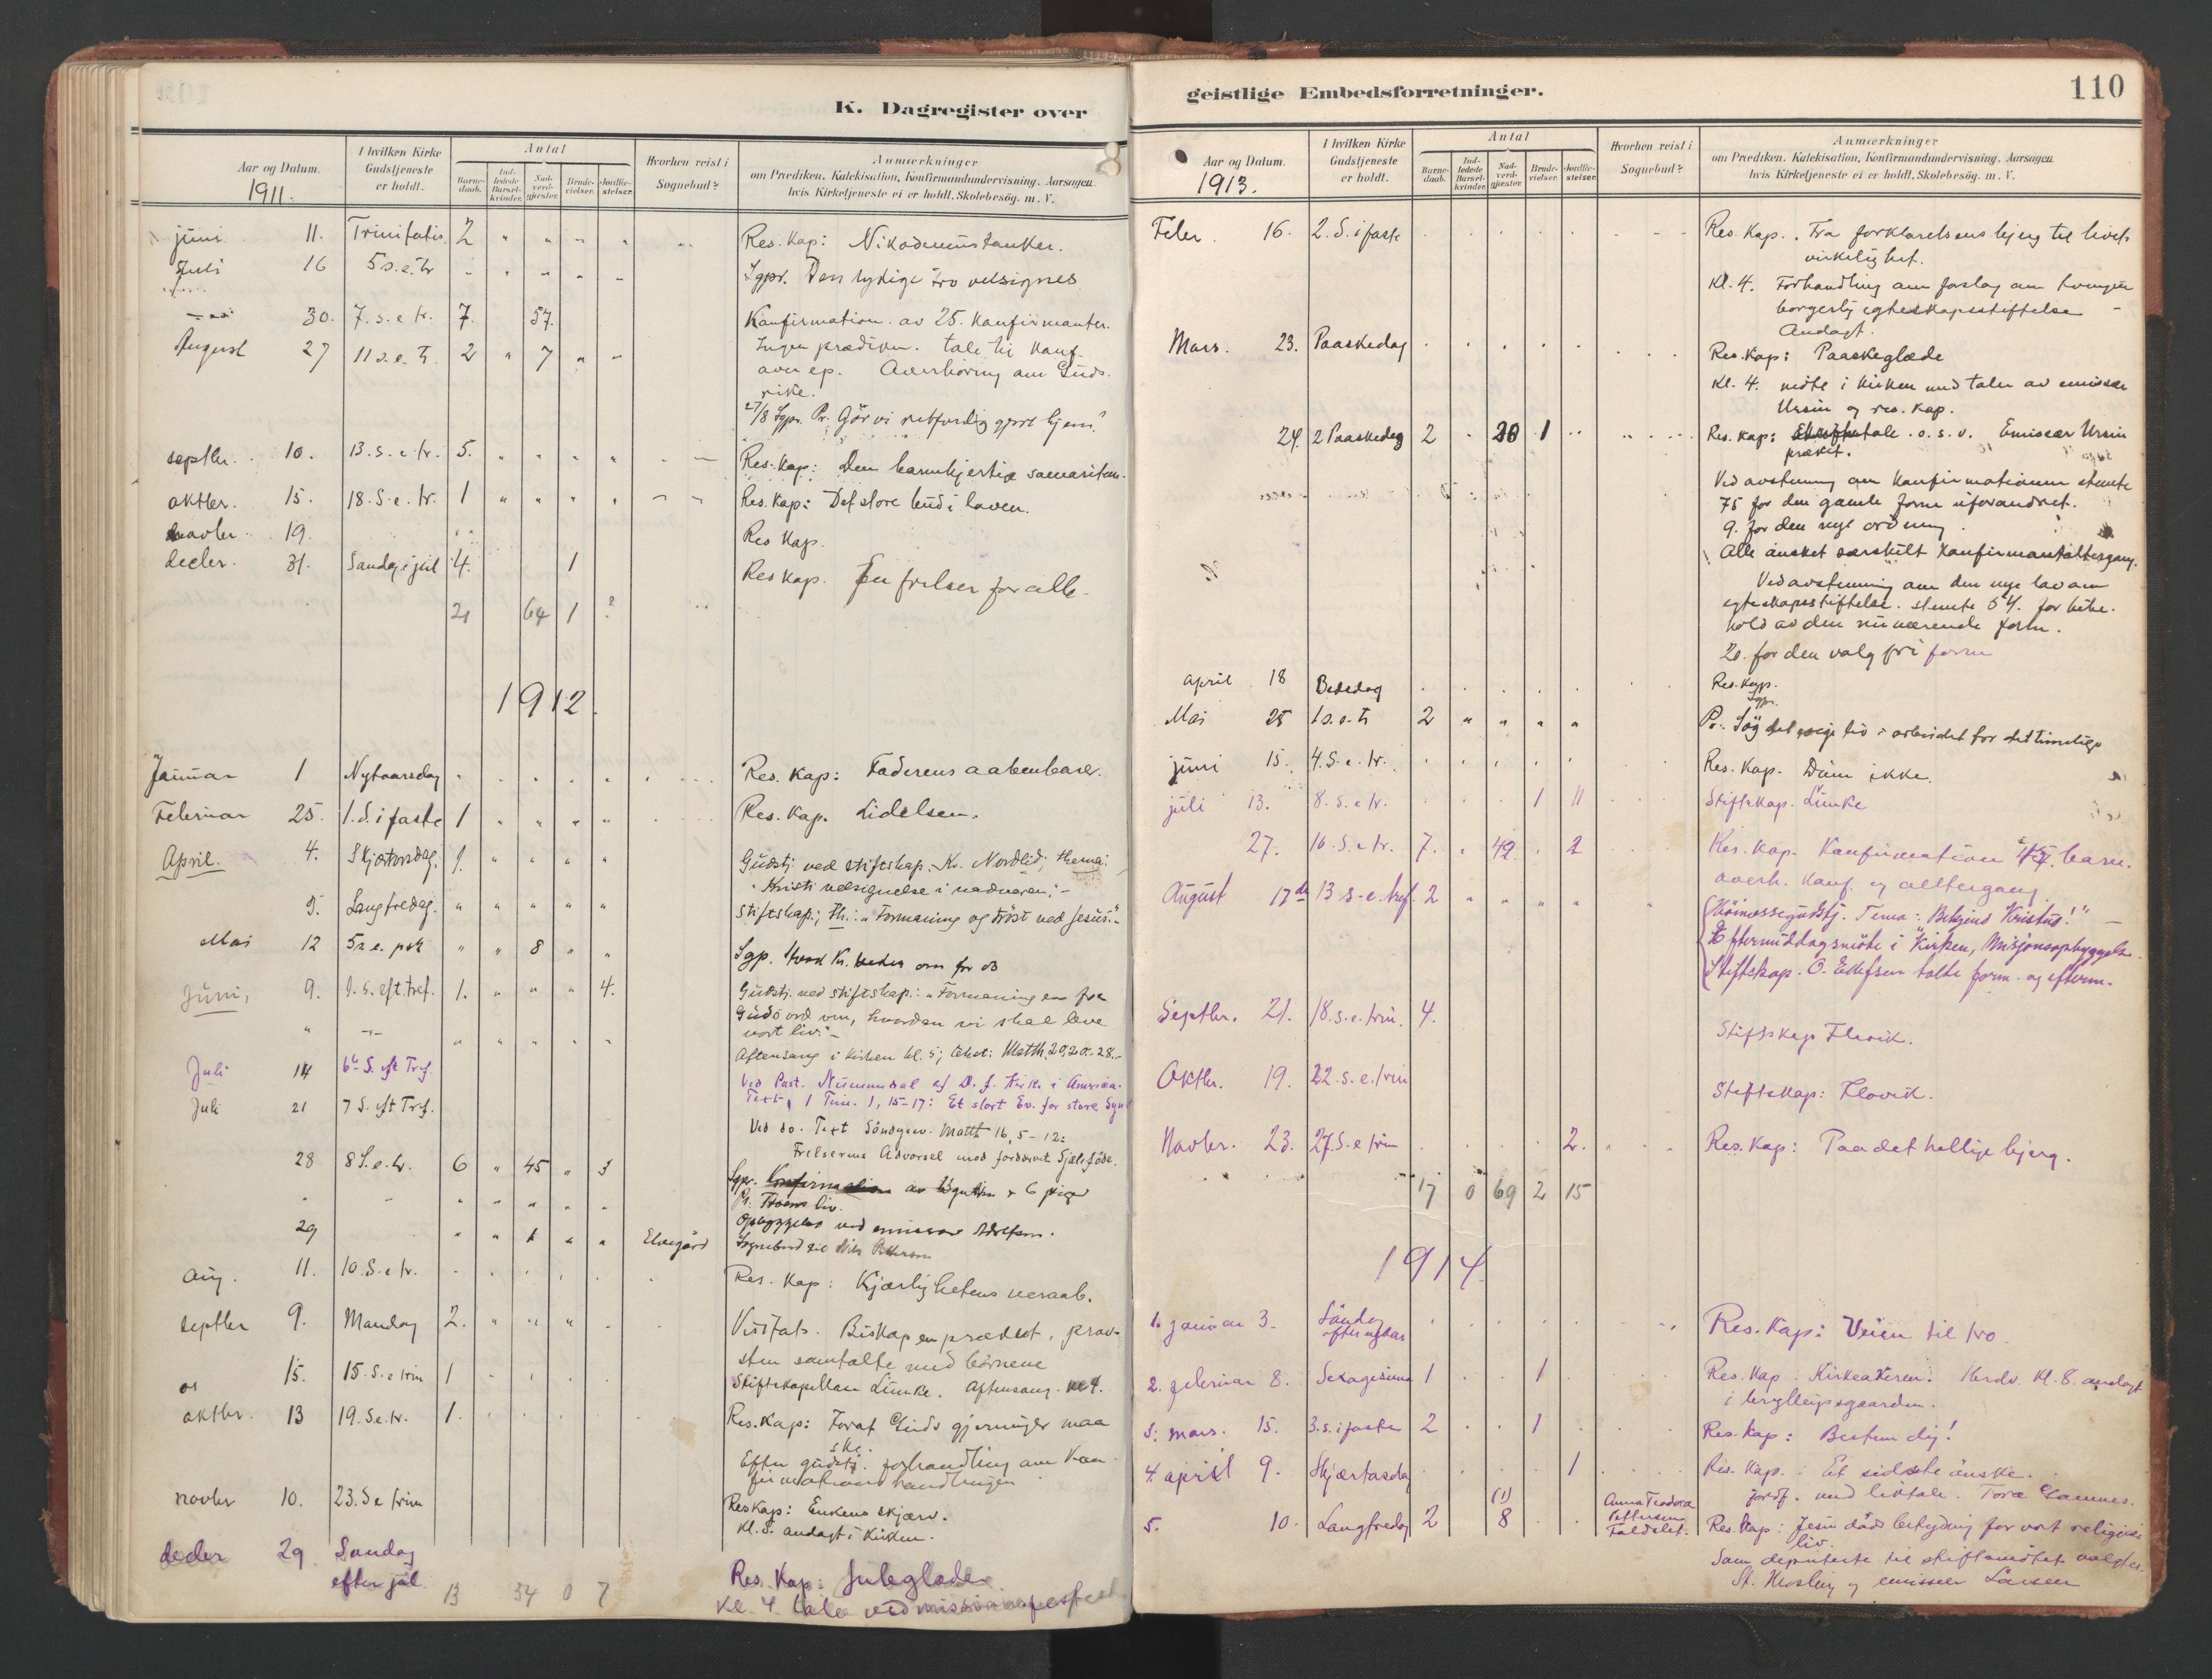 K. Dagregister over
Aar og Datum.
1911.
I hvilken Kirke Gudstjeneste er holdt.
Antal
Barne-daab.
Ind-ledede Barsel-kvinder.
Nad-verd-gjæster.
Brude-vielser.
Jordfæ-stelser.
Hvorhen reist i Sognebud?
Anmærkninger
om Prædiken. Katekisation, Konfirmandundervisning. Aarsagen
hvis Kirketjeneste ei er holdt. Skolebesög. m. V.
juni 11. Trinitatis 2 " " " " Res. Kap: Nikodemus tanker.
Juli 16 5 s.e. tr Sgpr. Den lydige tro velsignes
30. 7. s. e tr. 7. 57. Konfirmation av 25. Konfirmanter.
Ingen prædiken. tale til Konf.
August 27 11 s.e. Tr. 2 " 7 " "
over ep. Overhöring om Guds
rike.
27/8 Sgpr. Pr. Gör vi retfærdig hjem?
septbr. 10. 13. s. e tr. 5. Res. Kap: Den barmhjertige samaritan.
oktbr. 15. 18. S. e. tr. 1 Res. Kap: Det store bud i loven.
novbr. 19. Res Kap.
decbr. 31. Sandag i jul 4. 1 Res Kap. En frelser for alle.
21 64 1 ?
1912.
Januar 1 Nytaarsdag Res. Kap: Faderens aabenbarer.
Februar 25. 1. S. i faste 1 Res. Kap. Lidelsen.
April. 4. Skjærtorsdag. 1. Gudstj. ved stiftskap. Kr. Nordlid; thema:
"Kristi velsignelse i nadveren." -
5. Langfredag. " " " " " Stiftskap.; Th.: "Formaning og tröst ved Jesus." -
Mai 12 5 s e. psk " " 8 " " Sgp. Hvad Kr. beder om for os
Juni, 9. 1. s. eft. tref. 1. " " " 4. Gudstj. ved stiftskap.: "Formaningen fra
Guds ord om, hvordan vi skal leve
vort liv." -
Aftensang i kirken kl. 5; tekst: Matth. 20,20-28. -
Juli 14 6te S. eft Tref. Ved Past. af D. f. Kirke i Amerika.
Text, 1 Tim. 1, 15-17: Et stort Ev. for store
Juli 21 7 S. eft Tref. Ved do. Text Söndagsev. Matth 16, 5-12:
Frelserens Advarsel mod fordærvet Sjæleföde.
28 8 S. e. tr. 6 " 45 " 3 Sgpr. Konfirmation av gutter + 6 piger
Pr. Troens liv.
Opbyggelse ved emissær Adolfsen.
29 " " 1 " " Elvegård Sognebud til Nils
Aug. 11. 10. S. e tr. Res. Kap: Kjærlighetens
septbr 9. Mandag 2. Visitats. Biskopen prædket, prov-
sten samtalte med börnene
15. 15. S. e trin 1 Stiftskapellan Lunke. Aftensang kl 4.
oktbr. 13 19. S. e. tr. 1. Res. Kap: Forat Guds gjerninger maa
ske.
Efter gudstj. forhandling om Kon-
firmationshandlingen
novbr 10. 23. S e trin Res Kap: Enkens skjærv.
Kl. 5. andagt i Kirken.
decbr 29 Sandag
efter jul. Res. Kap: Juleglæde
13 54 0 7 Kl. 4 tale ved missionsfest
geistlige Embedsforretninger.
110
Aar og Datum.
1913.
I hvilken Kirke Gudstjeneste er holdt.
Antal
Barne-daab.
Ind-ledede Barsel-kvinder.
Nad-verd-gjæster.
Brude-vielser.
Jordfæ-stelser.
Hvorhen reist i Sognebud?
Anmærkninger
om Prædiken. Katekisation, Konfirmandundervisning. Aarsagen
hvis Kirketjeneste ei er holdt. Skolebesög. m. V.
Febr. 16. 2. S. i faste Res. Kap. Fra forklarelsens bjerg til livets
virkelighet.
Kl. 4. Forhandling om forslag om tvungen
borgerlig egteskapsstiftelse -
Andagt.
Mars. 23. Paaskedag Res. Kap: Paaskeglæde
Kl. 4. möte i kirken med taler av emissær
Ursin og res. Kap.
24. 2 Paaskedag 2 20 1 Res. Kap: tale o. s. v. Emissær Ursin
præket.
Ved avstemning om konfirmationen stemte
75 for den gamle form uforandret.
9. for den nye ordning.
Alle önsket særskilt konfirmantaltergang.
Ved avstemning om den nye lov om
egteskapsstiftelse stemte 54. for bibe-
hold av den nuværende form.
20. for den valgfri form
april 18 Bededag Res. Kap.
Sgpr.
Mai 25 1 s. e. tr 2 " " " " Pr. Søg det evige liv i arbeidet for det timelige
juni 15. 4. S. e. tr. Res. Kap. Döm ikke.
juli 13. 8. S. e tr. 1 11 Stiftskap. Lunke
27. 10. S. e tr. 7. 49 2 Res. Kap. Konfirmation barn.
overh. Konf. og altergang.
August 17de 13 s. e. tref. 2 " " " " Höimessegudstj. Tema: "Bekjend Kristus!" -
Eftermiddagsmöte i Kirken, Misjonsopbyggelse.
Stiftskap. O. Ellefsen talte form. og efterm.
Septbr. 21. 18. s. e. trin. 4. Stiftskap Flovik.
Oktbr. 19. 22. s. e. trin Stiftskap: Flovik.
Novbr. 23. 27. S. e trin 2. Res. Kap: Paa det hellige bjerg.
17 0 69 2 15
1914.
1. januar 3. Söndag
efter nytaar Res. Kap: Veien til tro.
2. februar 8. Sexagesima 1 1 Res. Kap: Kirkeakeren. Kl. 8. andagt
i bryllupsgaarden.
3. mars. 15. 3. s. i faste 2 1 Res. Kap: Bestem dig!
4. april 9. Skjærtorsdag 1 Res. Kap.: Et sidste önske.
jordf. med liktale. Tora
5. 10. Langfredag 2 (1) 8 Anna Teodora
Pettersen
Foldslet. Res. Kap: Jesu döds betydning for vort religiöse
liv.
Som deputerte til stiftsmötet valgtes
St. Mosling og emissær Larsen